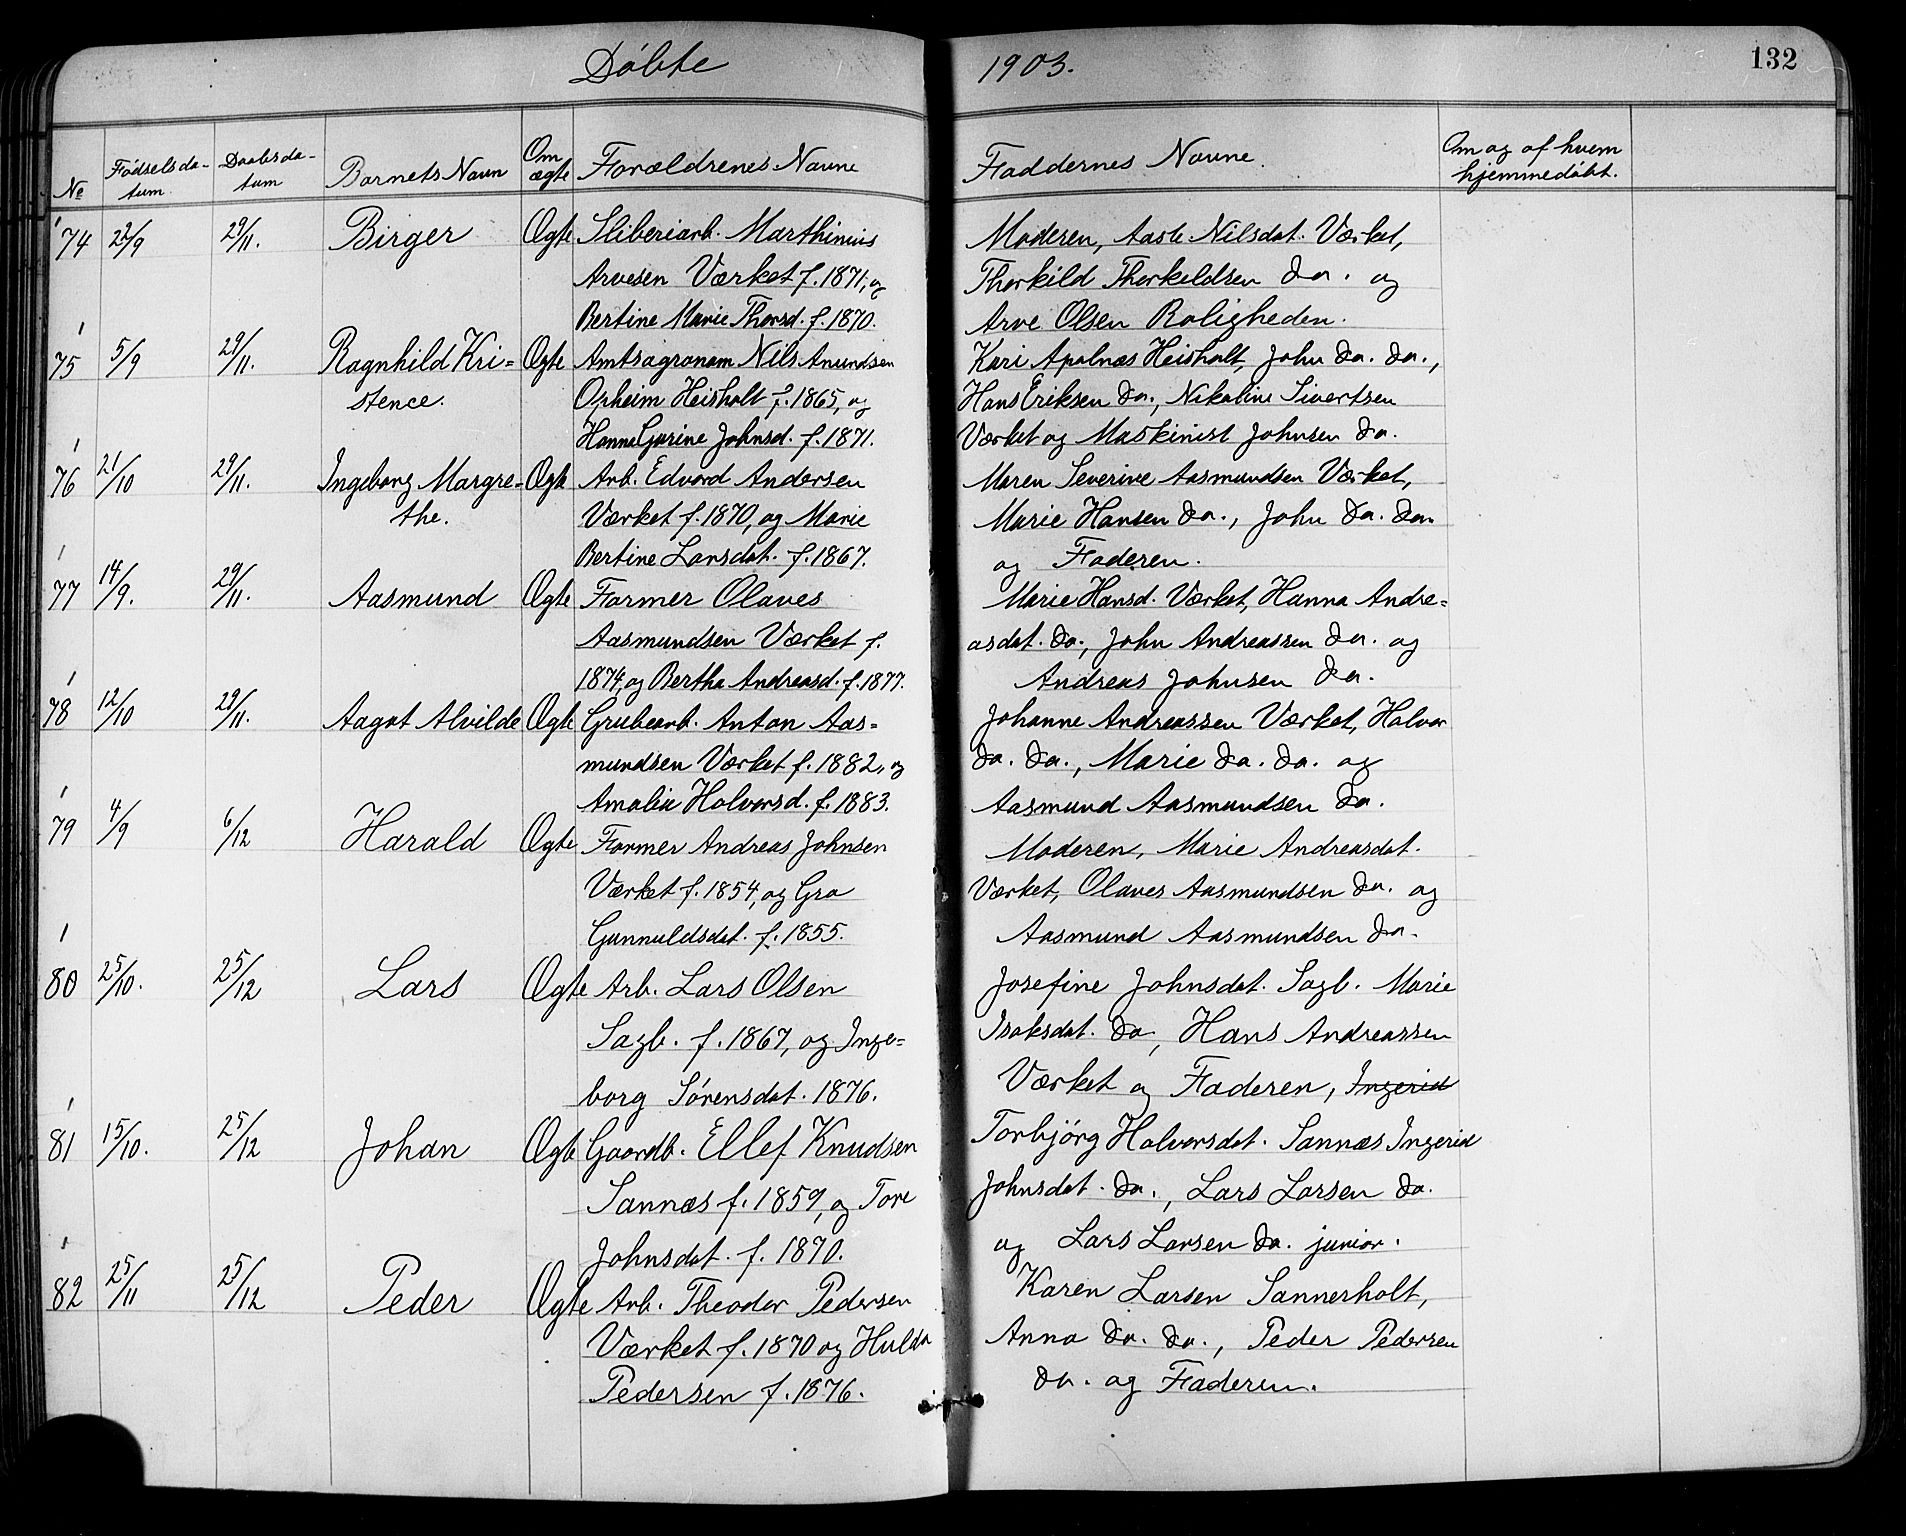 Döbte 1903. 132
No Födselsda- Daabsda- Barnets Navn Om Forældrenes Navne Faddernes Navne. Om og af hvem
tum. tum ægte hjemmedöbt.
74 22/9 29/11. Birger Ægte Sliberiarb. Marthinius Moderen, Aaste Nilsdat. Værket,
Arvesen Værket f. 1871, og Thorkild Thorkeldsen do. og
Bertine Marie Thorsd. f. 1870. Arve Olsen Roligheden.
75 5/9 29/11. Ragnhild Kri= Ægte Amtsagronom Nils Anundsen Kari Apalnæs Heisholt, John do. do.,
stence. Opheim Heisholt f. 1865, og Hans Eriksen do., Nikoline Sivertsen
Hanna Gurine Johnsd. f. 1871. Værket og Maskinist Johnsen do.
76 21/10 29/11. Ingeborg Margre= Ægte Arb. Edvard Andersen Maren Severine Aasmundsen Værket,
the. Værket f. 1870, og Marie Marie Hansen do., John do. do.
Bertine Larsdat. f. 1867. og Faderen.
77 14/9. 29/11. Aasmund Ægte Former Olaves Marie Hansd. Værket, Hanna Andre=
Aasmundsen Værket f. asdat. do., John Andreassen do. og
1874, og Bertha Andreasd. f. 1877. Andreas Johnsen do.
78 12/10 29/11. Aagot Alvilde Ægte Grubearb. Anton Aas= Johanne Andreassen Værket, Halvor
mundsen Værket f. 1882, og do. do., Marie do. do. og
Amalie Halvorsd. f. 1883. Aasmund Aasmundsen do.
79 4/9 6/12 Harald Ægte Former Andreas Johnsen Moderen, Marie Andreasdat.
Værket f. 1854, og Gro Værket, Olaves Aasmundsen do. og
Gunnuldsdat. f. 1855. Aasmund Aasmundsen do.
80 25/10. 25/12 Lars Ægte Arb. Lars Olsen Josefine Johnsdat. Sagb. Marie
Sagb. f. 1867, og Inge= Isaksdat. do, Hans Andreassen
borg Sörensdat. 1876. Værket og Faderen, Ingerid
81 15/10. 25/12 Johan Ægte Gaardb. Ellef Knudsen Torbjörg Halvorsdat. Sannæs Ingerid
Sannæs f. 1859, og Tore Johnsdat. do., Lars Larsen do.
Johnsdat. f. 1870. og Lars Larsen do. junior.
82 25/11 25/12 Peder Ægte Arb. Theodor Pedersen Karen Larsen Sannerholt,
Værket f. 1870 og Hulda Anna do. do., Peder Pedersen
Pedersen f. 1876. do. og Faderen.